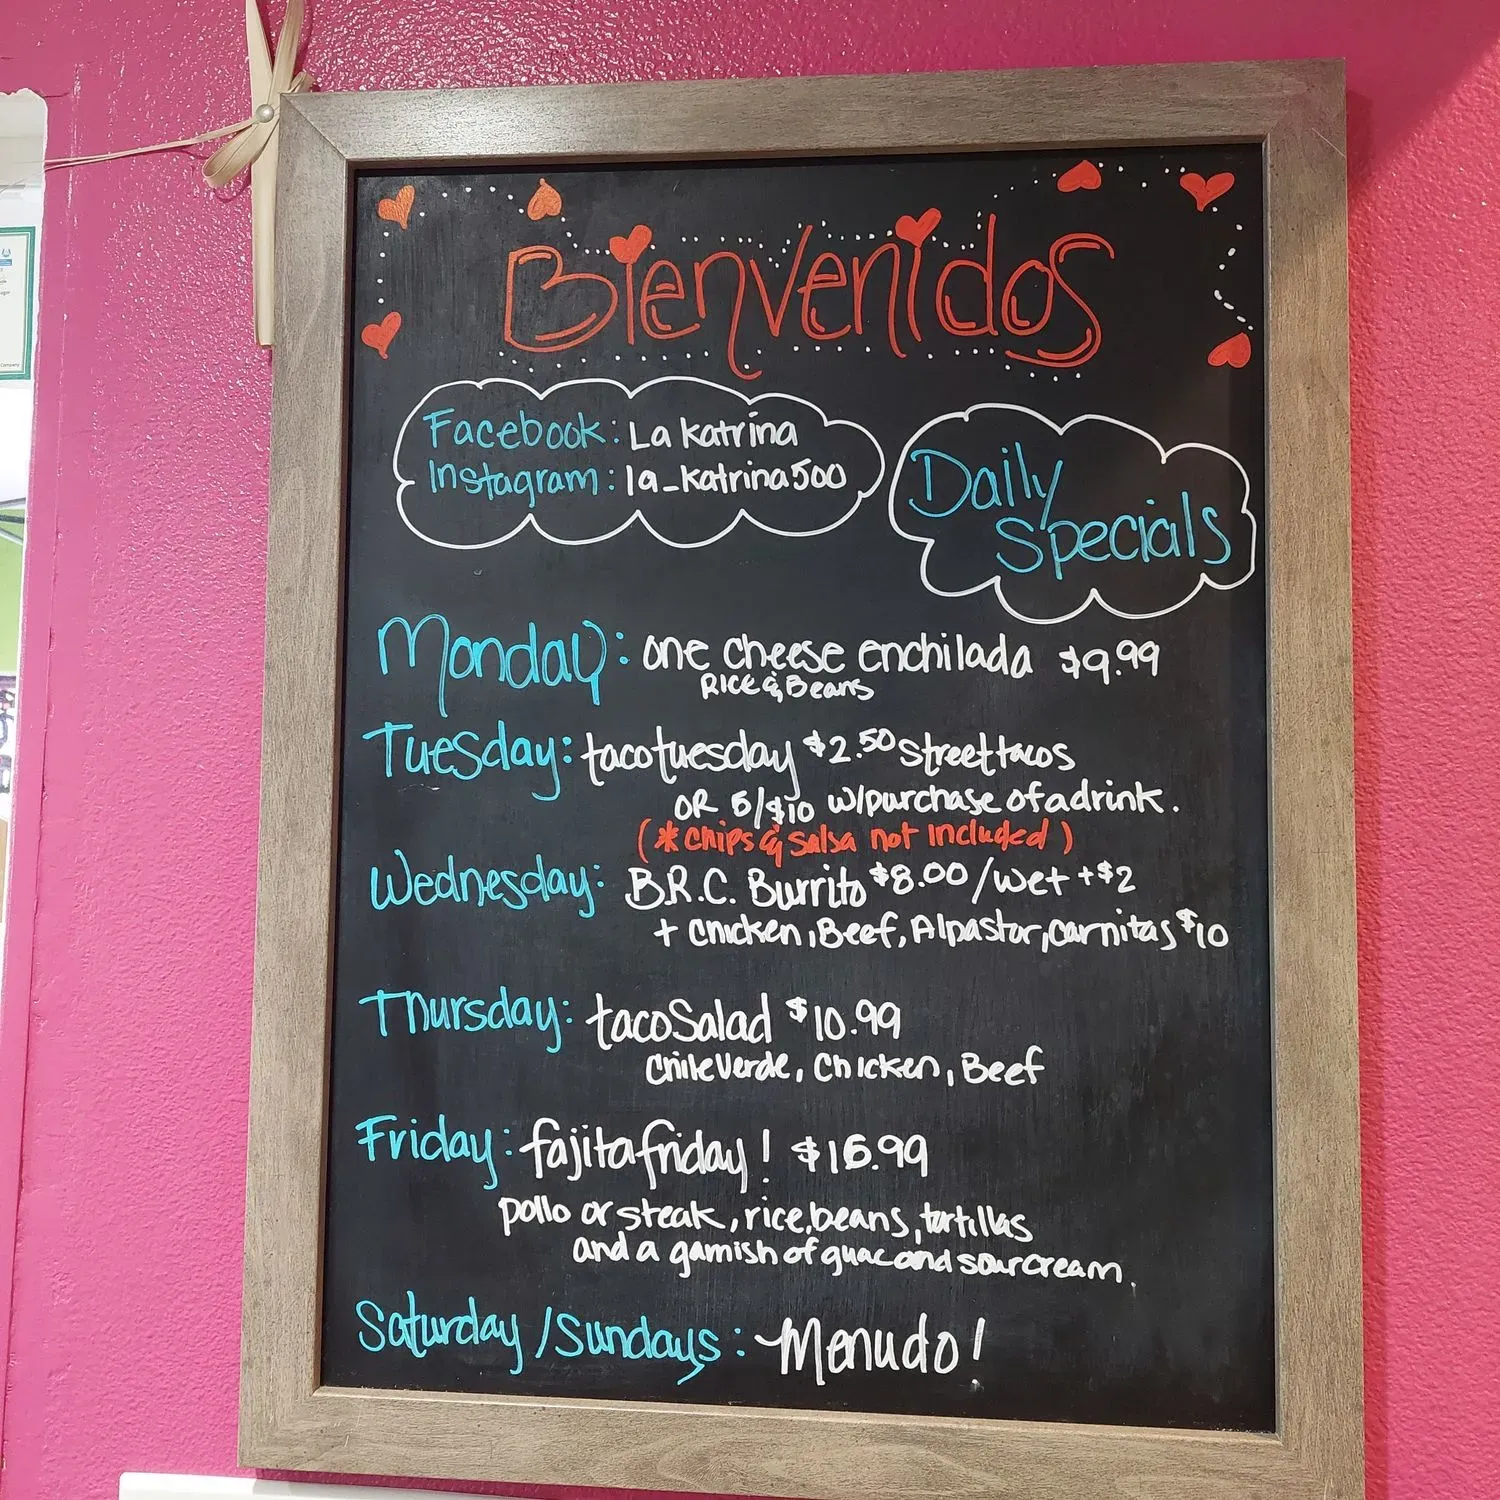 Bienvenidos
Facebook: La Katrina
Instagram: la_Katrina500
Daily
Specials
Monday: one cheese enchilada $9.99
Rice & Beans
Tuesday: taco tuesday $2.50 street tacos
OR 5/$10 w/purchase of a drink.
(* Chips & Salsa not included)
Wednesday: B.R.C. Burrito $8.00/wet +$2
+ Chicken, Beef, Al pastor, Carnitas $10
Thursday: taco Salad $10.99
Chile Verde, Chicken, Beef
Friday: fajita friday! $16.99
pollo or steak, rice, beans, tortillas
and a garnish of guac and sour cream.
Saturday/Sundays: Menudo!